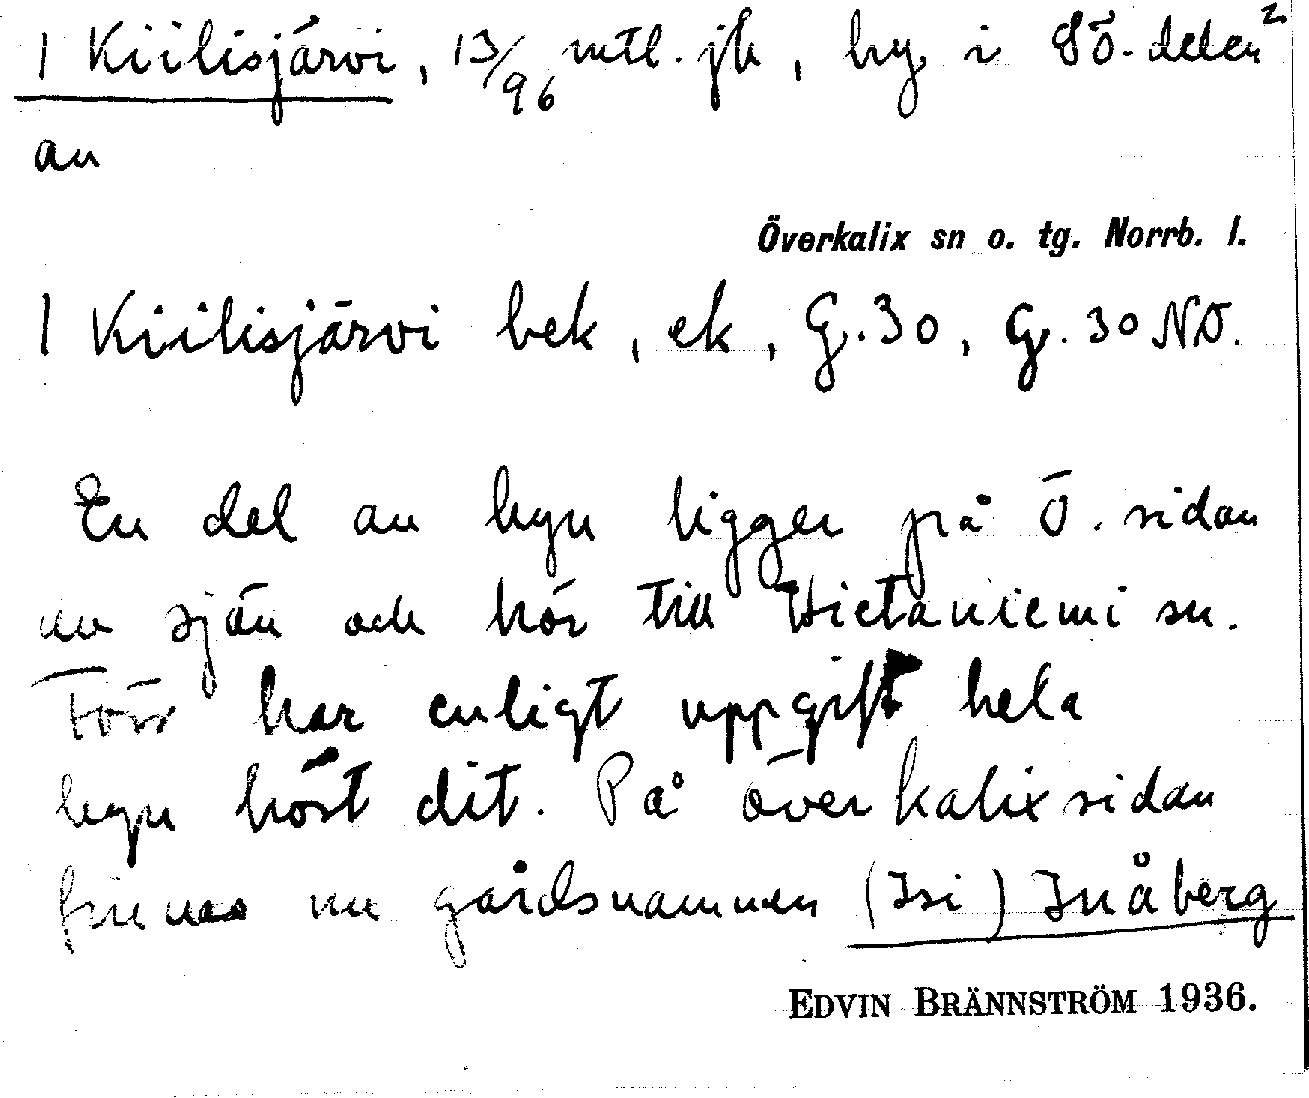 1 Kiilisjärvi, 13/96 mtl. jb, by i Sö-delen²
av
Överkalix sn o. tg. Norrb. l.
1 Kiilisjärvi bek, ek, G. 30, G. 30 NO.
En del av byn ligger på Ö. sidan
av sjön och hör till Hietaniemi sn.
Förr har enligt uppgift hela
byn hört dit. På överkalixsidan
finnas nu gårdsnamnen (Isi) Inåberg
EDVIN BRÄNNSTRÖM 1936.